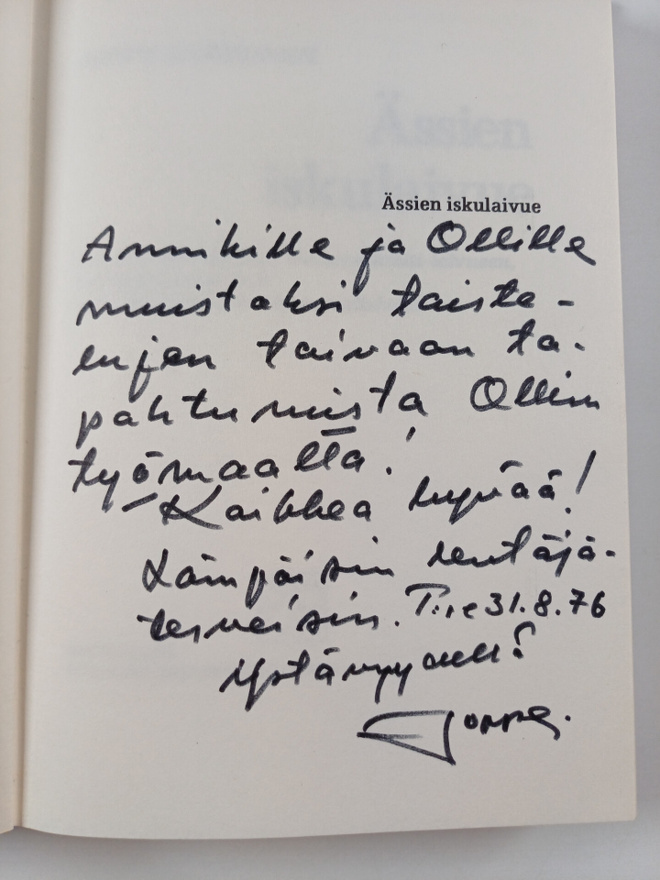 Ässien iskulaivue
Annikille ja Ollille
muistoksi taiste-
lujen taivaan ta-
pahtumista Ollin
työmaalta!
– Kaikkea hyvää!
Lämpöisin lentäjä-
terveisin. T:re 31.8.76
Ystävyydell?
Joppe.